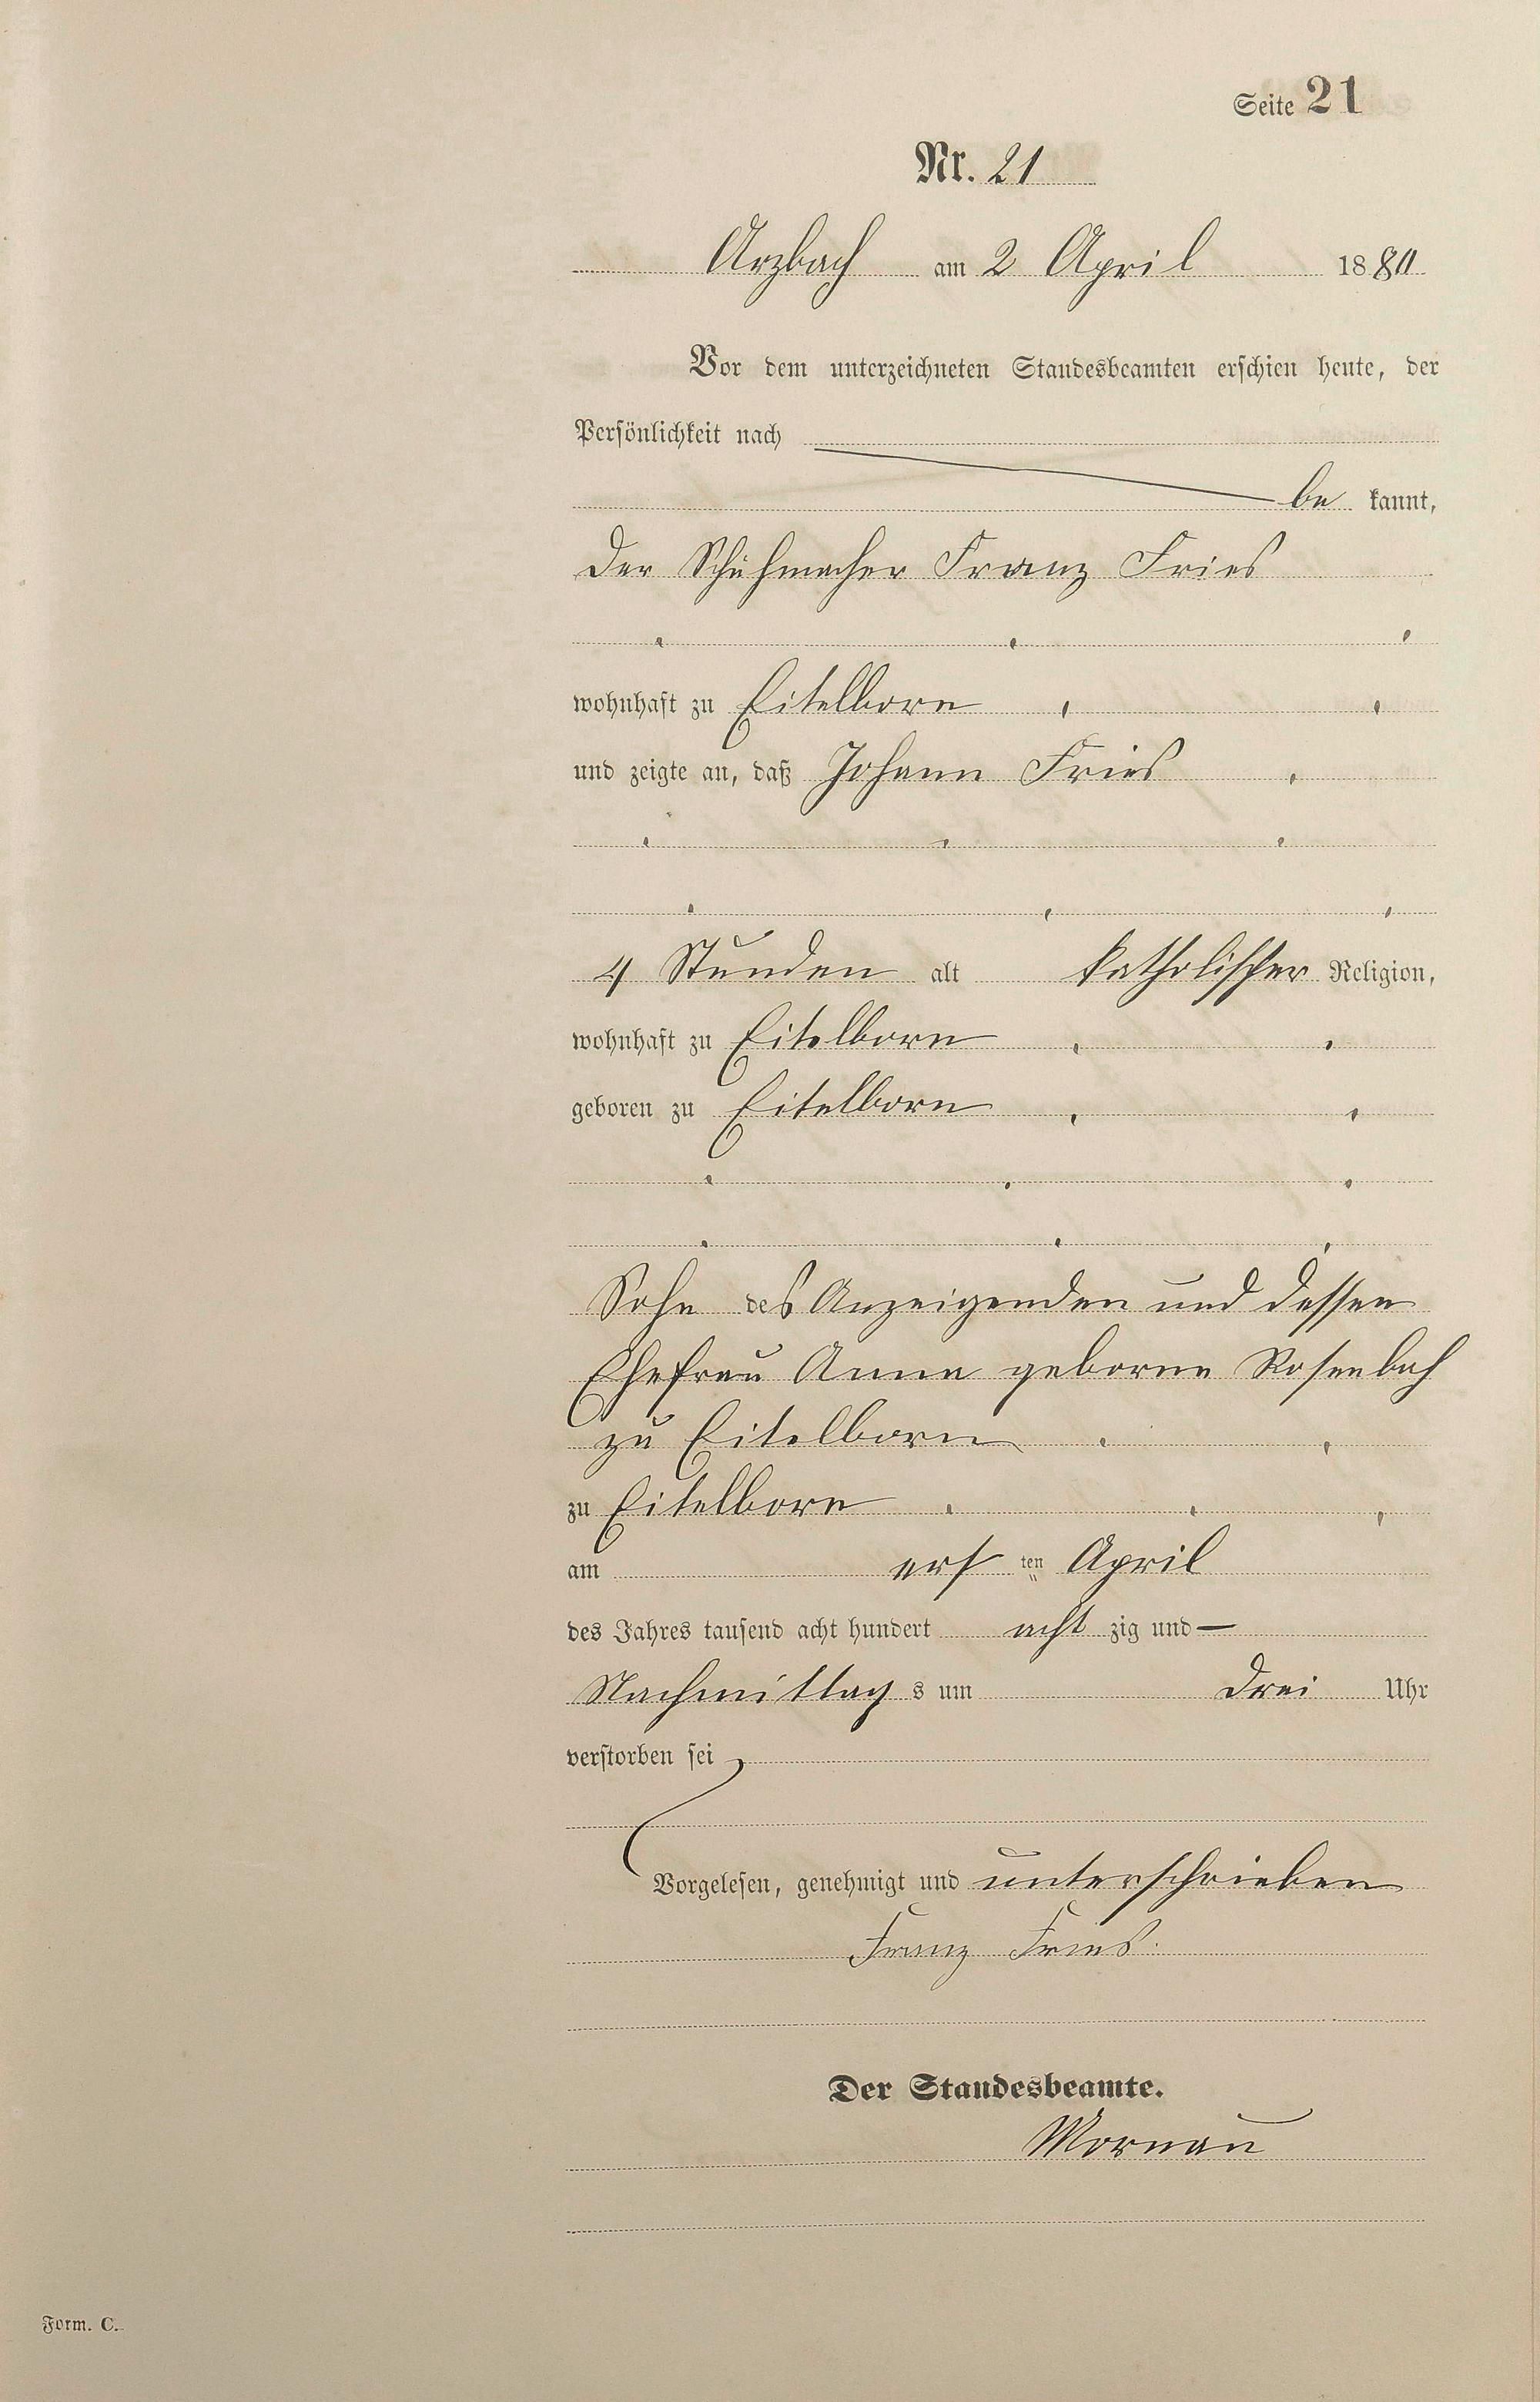 Seite 21
Nr. 21
Arzbach am 2 April 1880
Vor dem unterzeichneten Standesbeamten erschien heute, der
Persönlichkeit nach
be kannt,
der Schuhmacher Franz Fries
wohnhaft zu Eitelborn
und zeigte an, daß Johann Fries
4 Stunden alt katholischer Religion,
wohnhaft zu Eitelborn
geboren zu Eitelborn
Sohn des Anzeigenden und dessen
Ehefrau Anna geborne Rosenbach
zu Eitelborn
zu Eitelborn
am ers ten April
des Jahres tausend acht hundert acht zig und —
Nachmittag s um drei Uhr
verstorben sei
Vorgelesen, genehmigt und unterschrieben
Franz Fries.
Der Standesbeamte.
Mornau
Form. C.